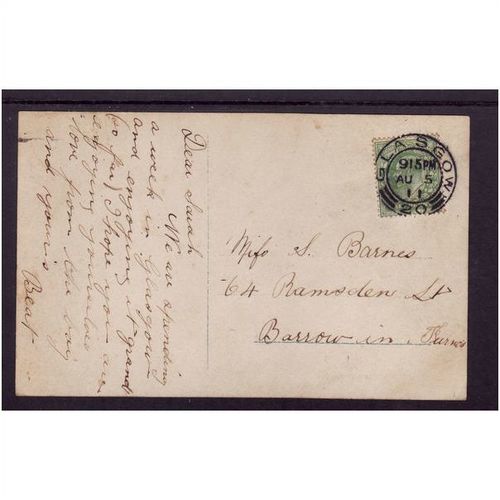 Dear Sarah
We are spending
a week in Glasgow
and enjoying it grand
so far, I hope you are
enjoying yourselves
love from the boy
and yours
Beat
GLASGOW
915PM
AU 5
11
20
Mifs S. Barnes
64 Ramsden St
Barrow in Furness